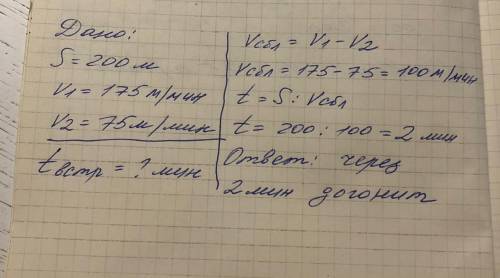 Дано:
S = 200 м
V1 = 175 м/мин
V2 = 75 м/мин
t встр = ? мин
Vсбл = V1 - V2
Vсбл = 175 - 75 = 100 м/мин
t = S : Vсбл
t = 200 : 100 = 2 мин
Ответ: через
2 мин догонит